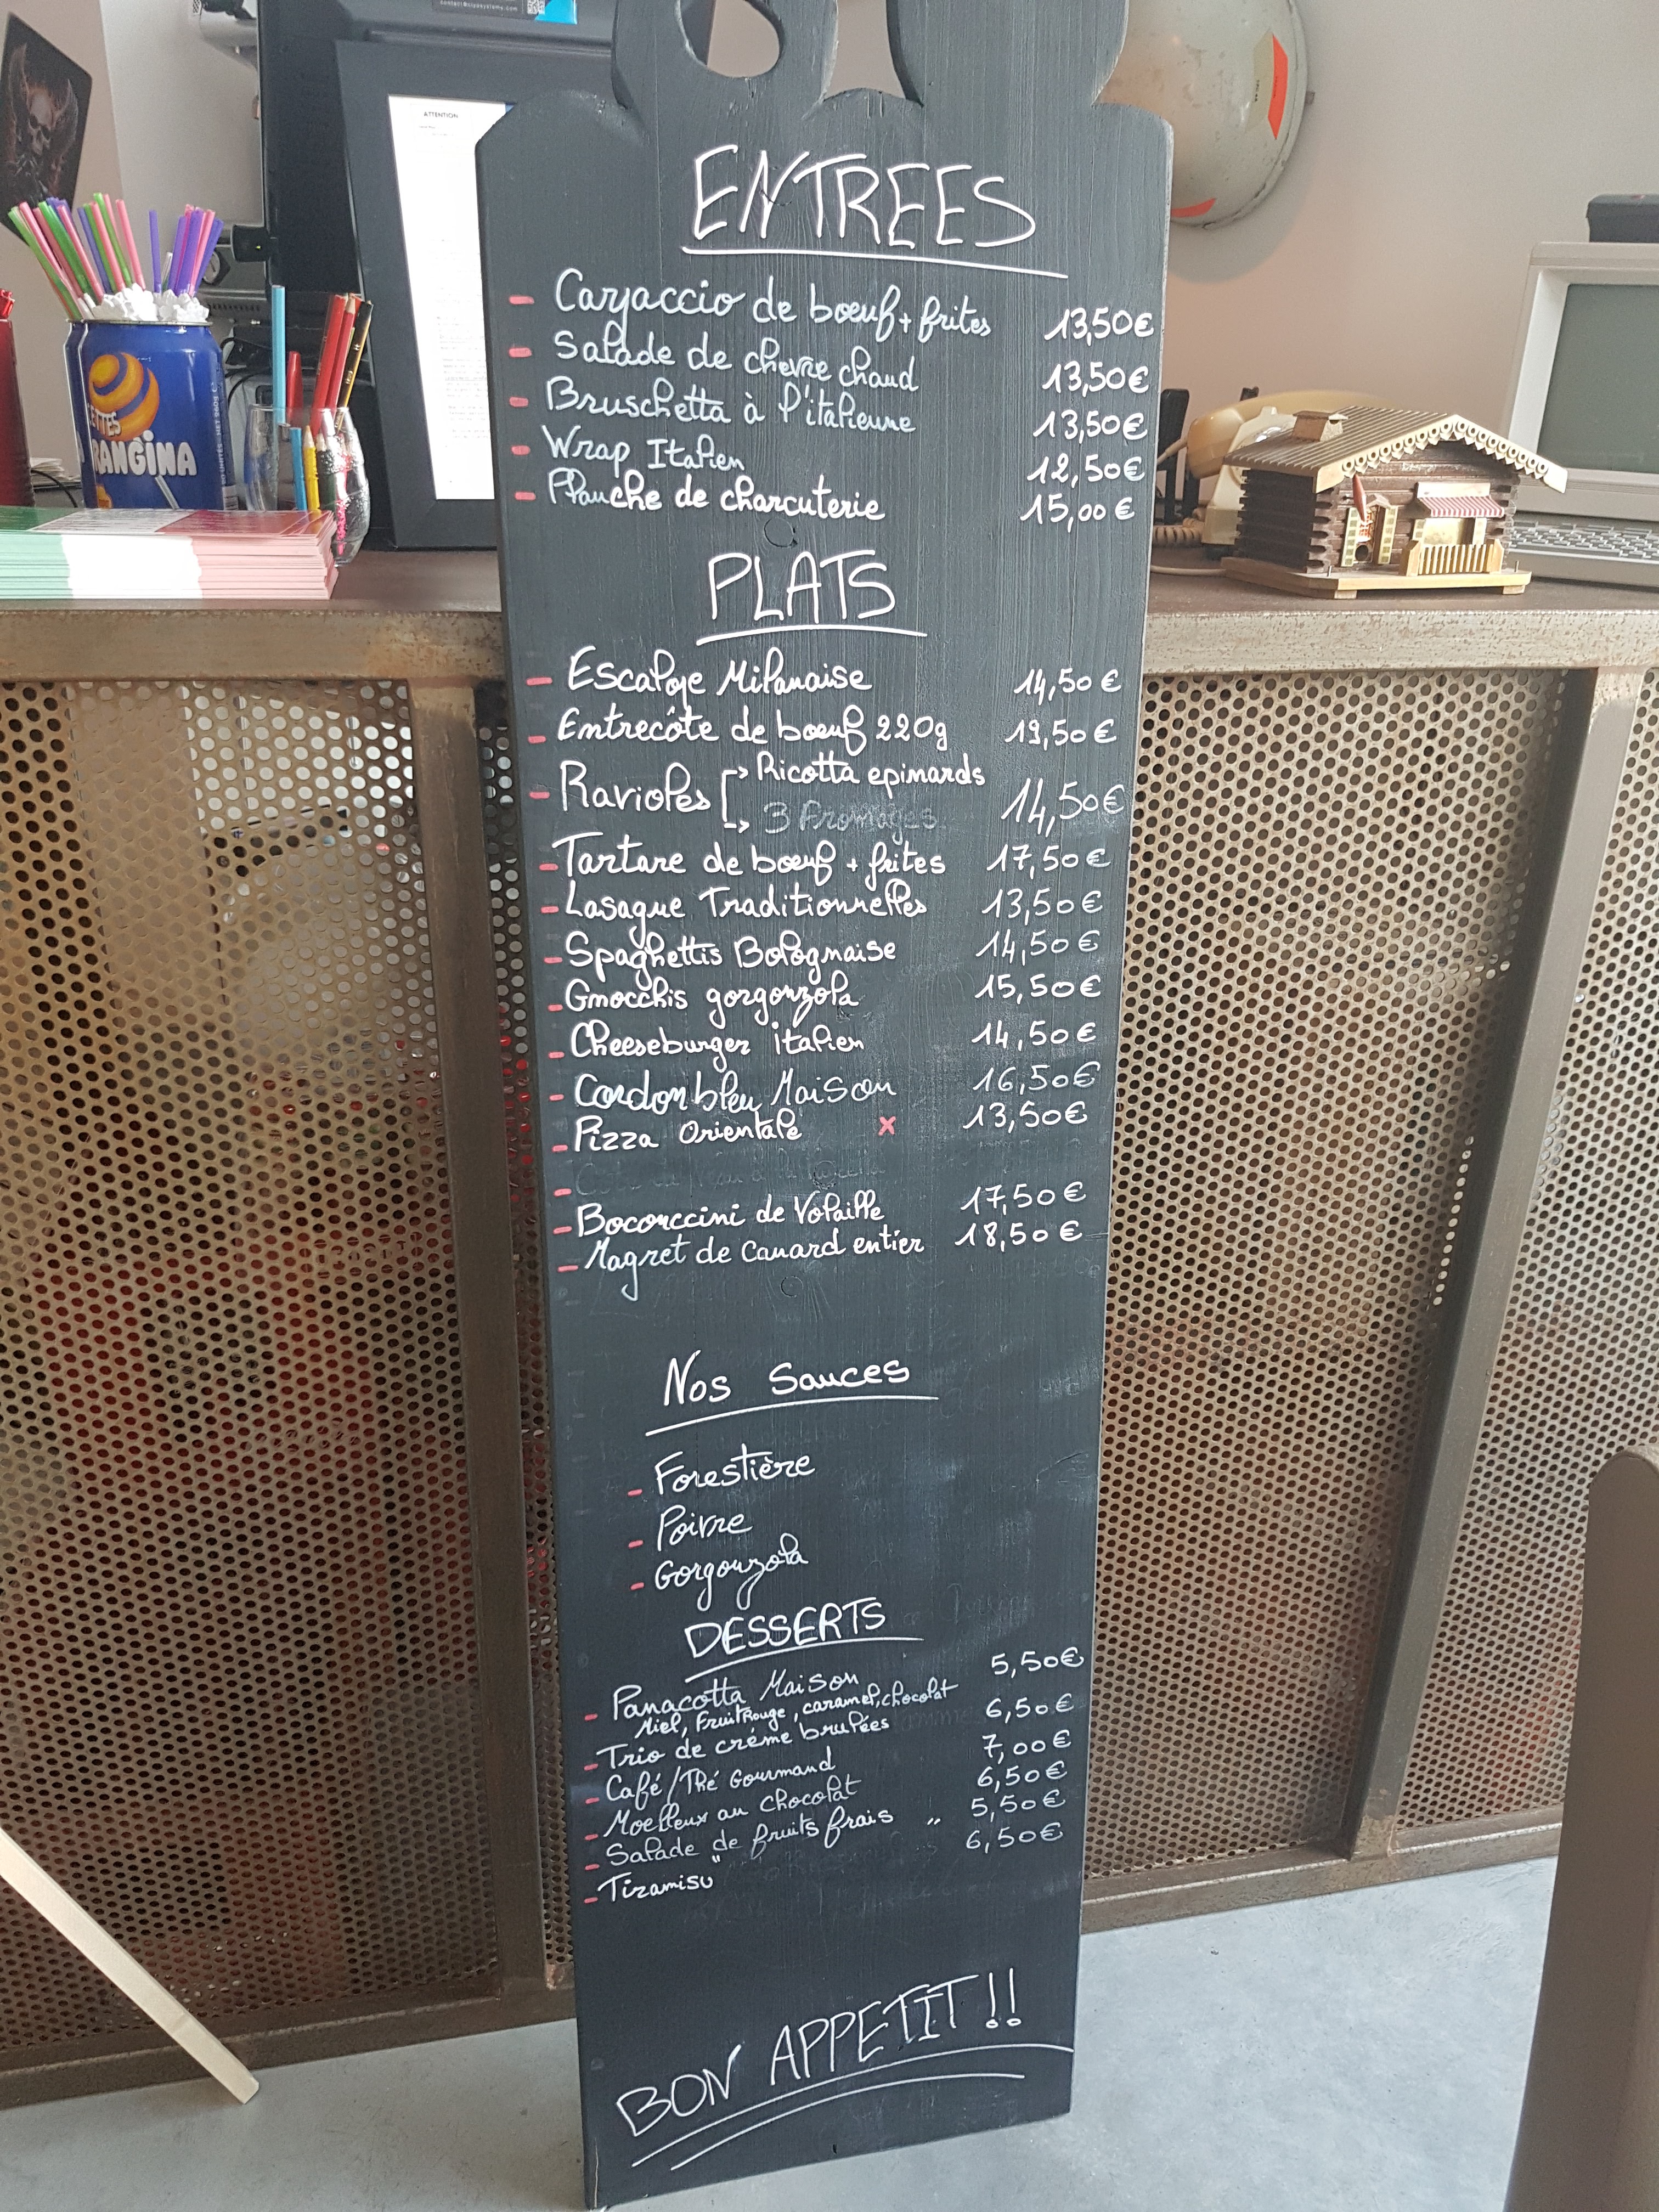 contact@siposystemy.com
ATTENTION
ENTREES
- Carpaccio de bœuf + frites 13,50€
- Salade de chevre chaud 13,50€
- Bruschetta à l'italienne 13,50€
- Wrap Italien 12,50€
- Planche de charcuterie 15,00€
PLATS
- Escalope Milanaise 14,50€
- Entrecôte de bœuf 220g 19,50€
- Ravioles Ricotta epinards 14,50€
3 Fromages
- Tartare de bœuf + frites 17,50€
- Lasagne Traditionnelles 13,50€
- Spaghettis Bolognaise 14,50€
- Gnocchis gorgonzola 15,50€
- Cheeseburger italien 14,50€
- Cordon bleu Maison 16,50€
- Pizza Orientale x 13,50€
- Bocorccini de Volaille 17,50€
- Magret de Canard entier 18,50€
Nos Sauces
- Forestière
- Poivre
- Gorgonzola
DESSERTS
- Panacotta Maison 5,50€
Miel, Fruit Rouge, caramel, chocolat
- Trio de créme brulées 6,50€
- Café/Thé Gourmand 7,00€
- Moelleux au chocolat 6,50€
- Salade de fruits frais 5,50€
- Tiramisu 6,50€
BON APPETIT!!
RANGINA